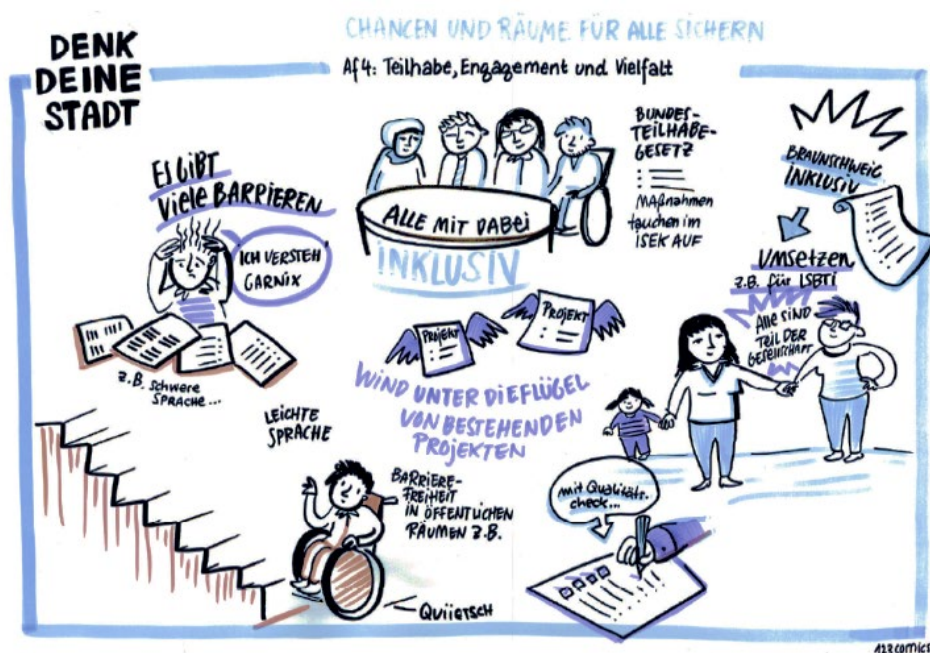 DENK
DEINE
STADT
CHANCEN UND RÄUME FÜR ALLE SICHERN
Af4: Teilhabe, Engagement und Vielfalt
ES GIBT
Viele BARRIEREN
ICH VERSTEH
GARNIX
Z.B. schwere
SPRACHE...
LEICHTE
SPRACHE
ALLE MIT DABEI
INKLUSIV
BUNDES-
TEILHABE-
GESETZ
MAßNAHMEN
tauchen im
ISEK AUF
BRAUNSCHWEIG
INKLUSIV
UMSETZEN
z.B. für LSBTI
Alle SIND
TEIL DER
GESELLSCHAFT
PROJEKT
PROJEKT
WIND UNTER DIE FLÜGEL
VON BESTEHENDEN
PROJEKTEN
BARRIERE-
FREIHEIT
IN ÖFFENTLICHEN
RÄUMEN Z.B.
QUIIETSCH
mit Qualitäts-
check...
123comics